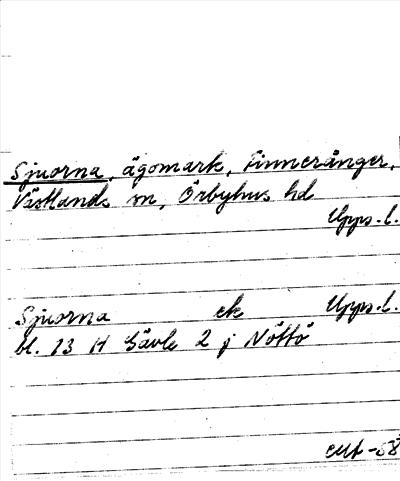 Sjuorna, ägomark, Finneränger,
Västlands sn, Örbyhus hd
Upps. l.
Sjuorna ek Upps. l.
bl. 13 H Gävle 2 j Nöttö
-58